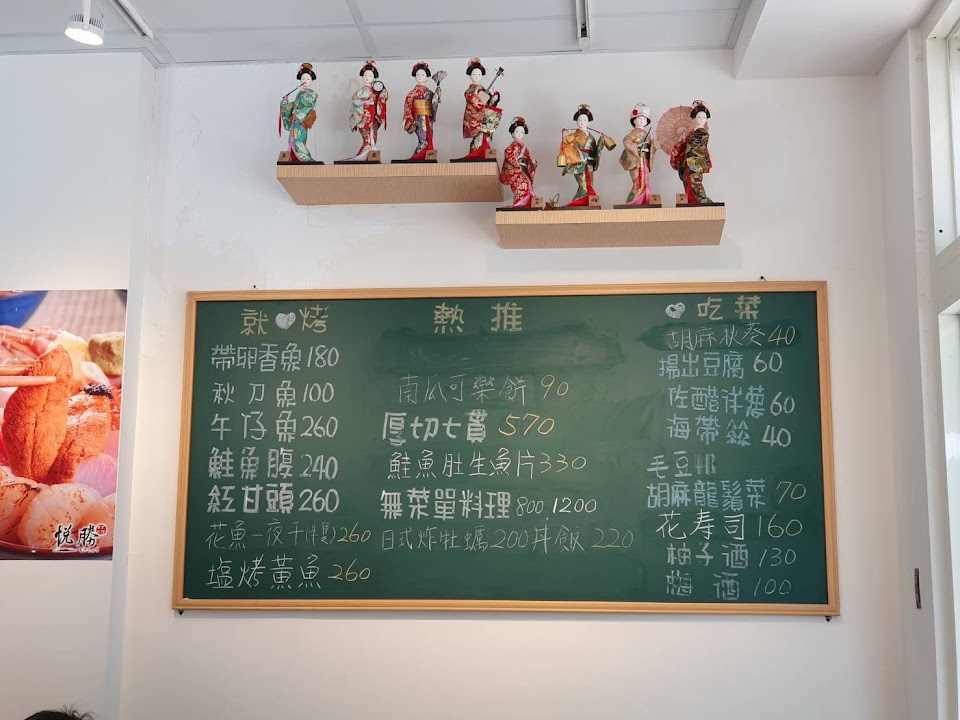 就烤
帶卵香魚180
秋刀魚100
午仔魚260
鮭魚腹240
紅甘頭260
花魚一夜干(半隻)260
塩烤黃魚260
熱推
南瓜可樂餅90
厚切七貫570
鮭魚肚生魚片330
無菜單料理800 1200
日式炸牡蠣200丼飯220
吃菜
胡麻秋葵40
揚出豆腐60
佐醋洋蔥60
海帶絲40
毛豆
胡麻龍鬚菜70
花寿司160
柚子酒130
梅酒100
悅勝